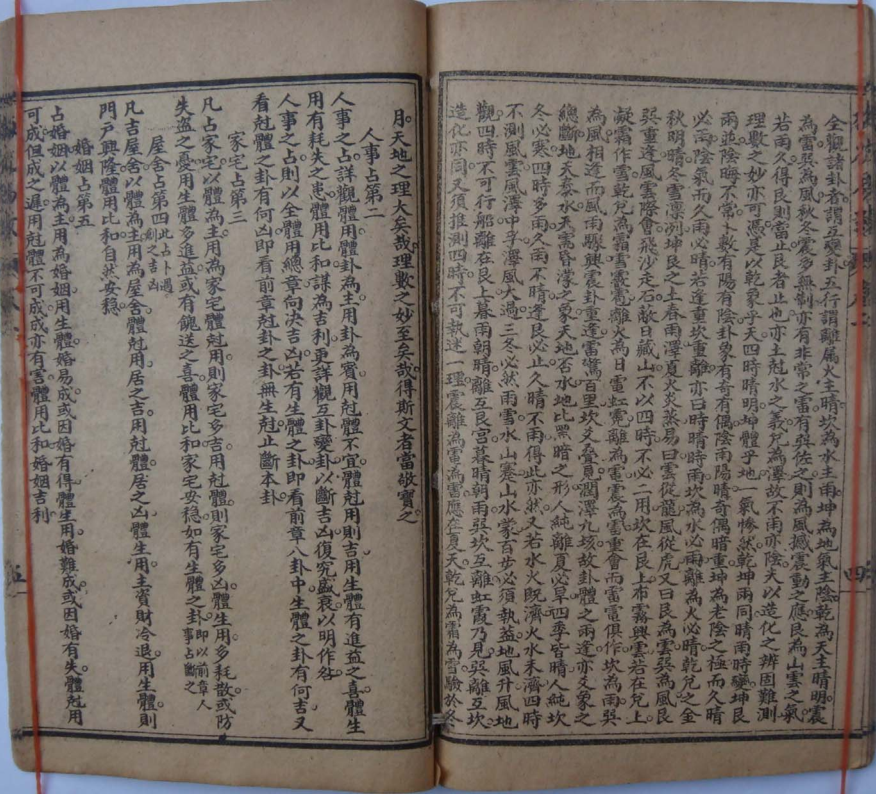 全觀諸卦者謂互變卦五行謂離屬火主晴坎為水主雨坤為地氣主陰乾為天主晴明震
為雷巽為風秋冬震多無制亦有非常之雷有巽佐之則為風撼震動之應艮為山雲之氣
若雨久得艮則當止艮者止也亦土尅水之義兌為澤故不雨亦陰夫以造化之辨固難測
理數之妙亦可憑是以乾象乎天四時晴明坤體乎地一氣慘然乾坤兩同晴雨時變坤艮
兩並陰晦不常卜數有陽有陰卦象有奇有偶陰雨陽晴奇偶暗重坤為老陰之極而久晴
必雨陰氣而久雨必晴若逢重坎重離亦曰時晴時雨坎為水必雨離為火必晴乾兌之金
秋明晴冬雪凛冽坤艮之土春雨澤夏火炎蒸易曰雲從龍風從虎又曰艮為雲巽為風艮
巽重逢風雲際會飛沙走石蔽日藏山不以四時不必二用坎在艮上布霧興雲若在兌上
凝霜作雪乾兌為霜雪雹離火為日電虹霓離為電震為雷重會而雷電俱作坎為雨巽
為風相逢而風雨驟興震卦重逢雷驚百里坎爻疊見潤澤九垓故卦體之兩逢亦爻象之
總斷地天泰水天需昏濛之象天地否水地比黑暗之形人純離夏必旱四季皆晴人純坎
冬必寒四時多雨久雨不晴逢艮必止久晴不雨得此亦然又若水火既濟火水未濟四時
不測風雲風澤中孚澤風大過三冬必然雨雪水山蹇山水蒙百步必須執蓋地風升風地
觀四時不可行船離在艮上暮雨朝晴離互艮宮暮晴朝雨巽坎互離虹霞乃見巽離互坎
造化亦同又須推測四時不可執迷一理震離為電為雷應在夏天乾兌為霜為雪驗於冬
四
月天地之理大矣哉理數之妙至矣哉得斯文者當敬寶之
人事占第二
人事之占詳觀體用體卦為主用卦為賓用尅體不宜體尅用則吉用生體有進益之喜體生
用有耗失之患體用比和謀為吉利更詳觀互卦變卦以斷吉凶復究盛衰以明作咎
人事之占則以全體用總章向決吉凶若有生體之卦即看前章八卦中生體之卦有何吉又
看尅體之卦有何凶即看前章尅卦之卦無生尅止斷本卦
家宅占第三
凡占家宅以體為主用為家宅體尅用則家宅多吉用尅體則家宅多凶體生用多耗散或防
失盜之憂用生體多進益或有餽送之喜體用比和家宅安穩如有生體之卦即以前章人事占斷之
屋舍占第四此占卜遇創之吉凶
凡吉屋舍以體為主用為屋舍體尅用居之吉用尅體居之凶體生用主資財冷退用生體則
門戶興隆體用比和自然安穩
婚姻占第五
占婚姻以體為主用為婚姻用生體婚易成或因婚有得體生用婚難成或因婚有失體尅用
可成但成之遲用尅體不可成成亦有害體用比和婚姻吉利
五